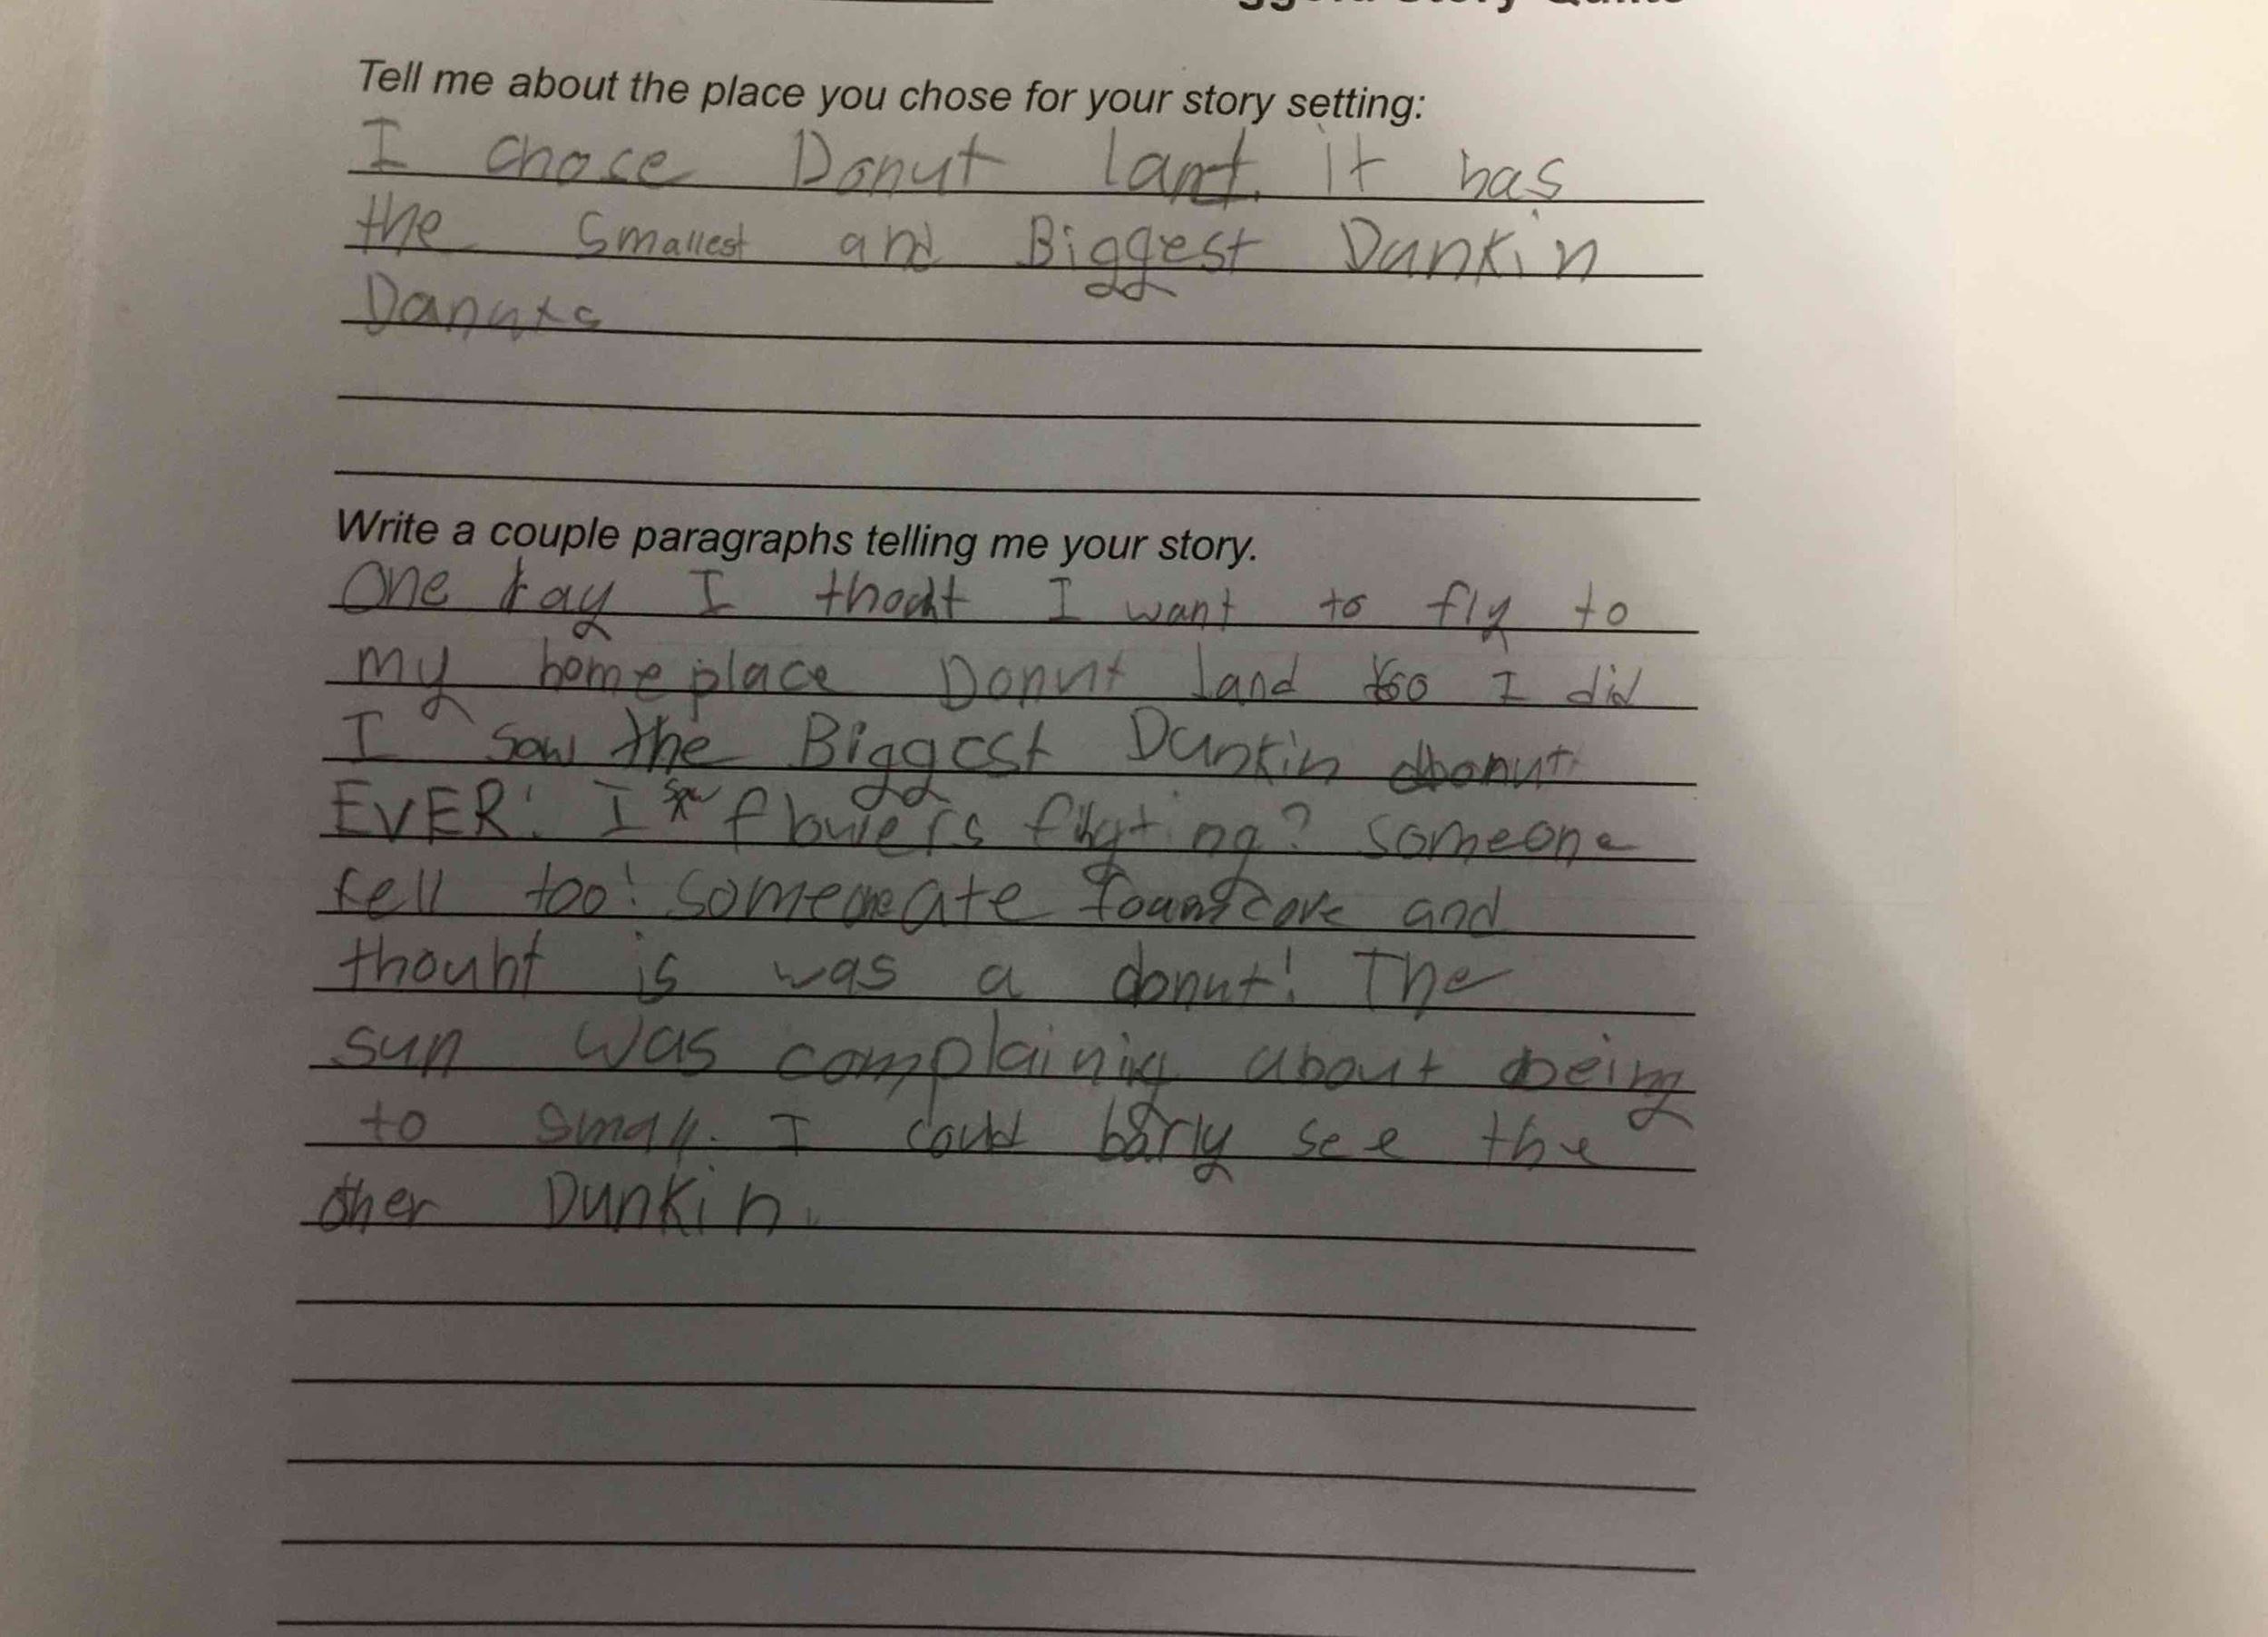 Story
Tell me about the place you chose for your story setting:
I chose Donut lant. it has
the Smallest and Biggest Dunkin
Danuts
Write a couple paragraphs telling me your story.
One tay I thoaht I want to fly to
my homeplace Donut land so I did
I saw the Biggest Dunkin donut
EVER! I saw flowers fighting? someone
fell too! someone ate and
thouht is was a donut! The
sun was complaining about being
to small. I could barly see the
other Dunkin.